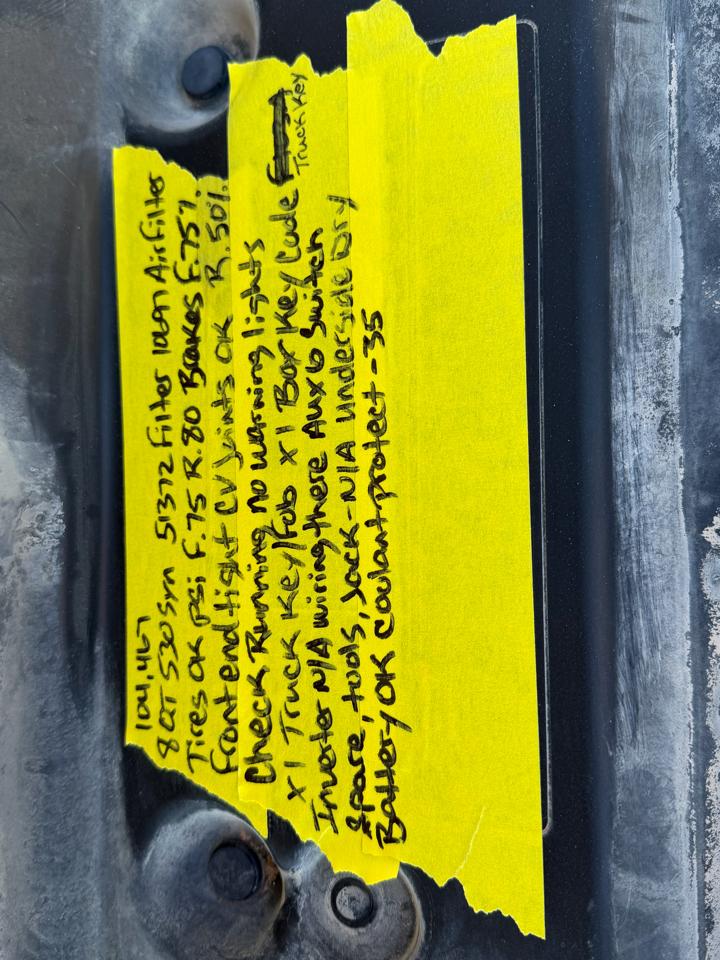 104,467
8 QT 530 syn 51372 Filter Air Filter
Tires OK PSI F.75 R.80 Brakes F.75%.
Frontend tight CV Joints OK R.50%.
Check Running no warning lights
X1 Truck Key/Fob X1 Box Key Code Truck Key
Inverter N/A wiring there Aux 6 Switch
Spare, tools, Jack-N/A Underside Dry
Battery OK Coolant protect -35